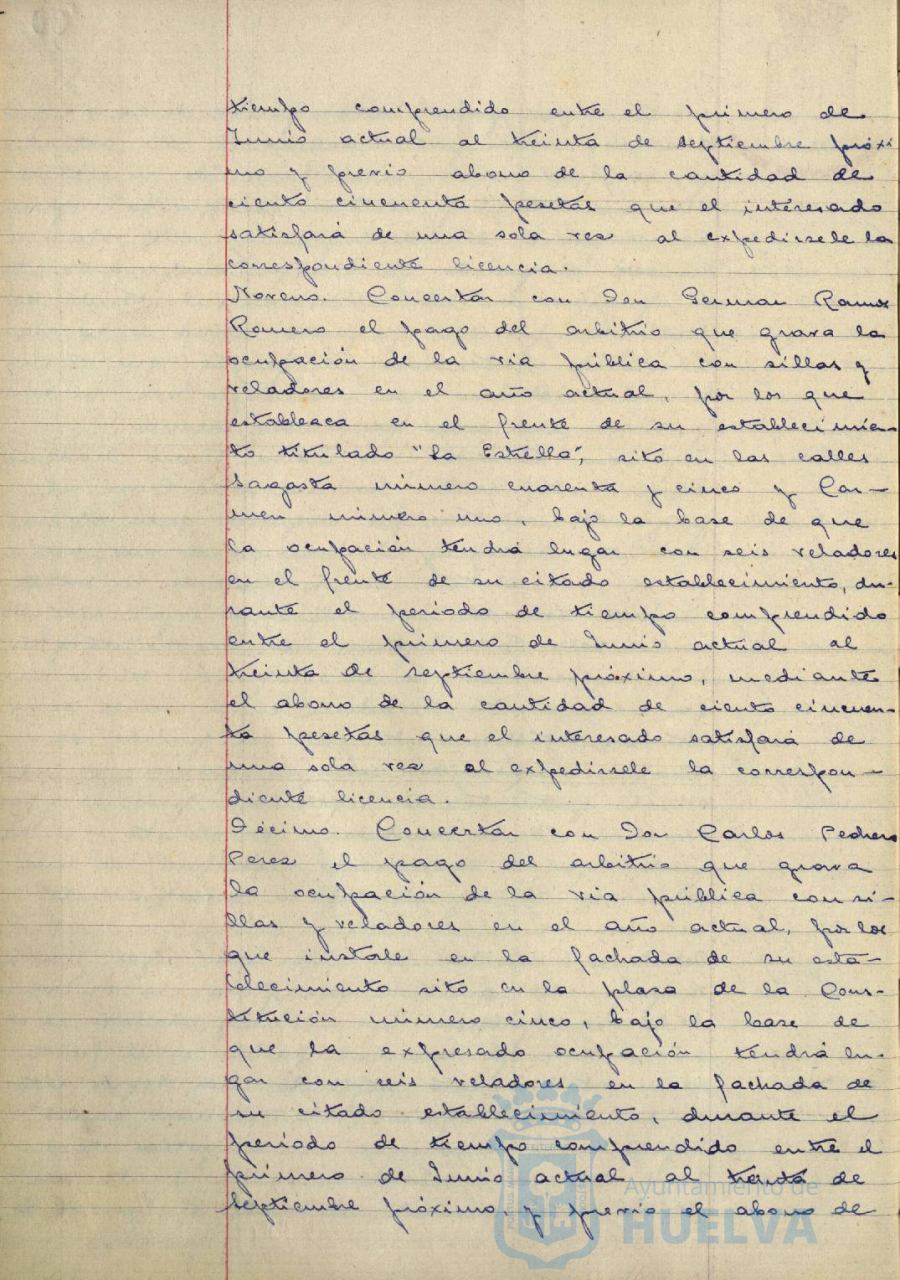 tiempo comprendido entre el primero de
Junio actual al treinta de septiembre próxi
mo y previo abono de la cantidad de
ciento cincuenta pesetas que el interesado
satisfará de una sola vez al expedirsele la
correspondiente licencia.
Noveno. Concertar con Don German Ramos
Romero el pago del arbitrio que grava la
ocupación de la via pública con sillas y
veladores en el año actual, por los que
establezca en el frente de su establecimien-
to titulado "La Estrella", sito en las calles
Sagasta número cuarenta y cinco y Car-
men número uno, bajo la base de que
la ocupación tendrá lugar con seis veladores
en el frente de su citado establecimiento, du-
rante el periodo de tiempo comprendido
entre el primero de Junio actual al
treinta de septiembre próximo, mediante
el abono de la cantidad de ciento cincuen-
ta pesetas que el interesado satisfará de
una sola vez al expedirsele la correspon-
diente licencia.
Décimo. Concertar con Don Carlos Pedrero
Perez el pago del arbitrio que grava
la ocupación de la via pública con si-
llas y veladores en el año actual, por los
que instale en la fachada de su esta-
blecimiento sito en la plaza de la Cons-
titución número cinco, bajo la base de
que la expresado ocupación tendrá lu-
gar con seis veladores en la fachada de
su citado establecimiento, durante el
periodo de tiempo comprendido entre el
primero de Junio actual al treinta de
septiembre próximo, y previo el abono de
Ayuntamiento de
HUELVA